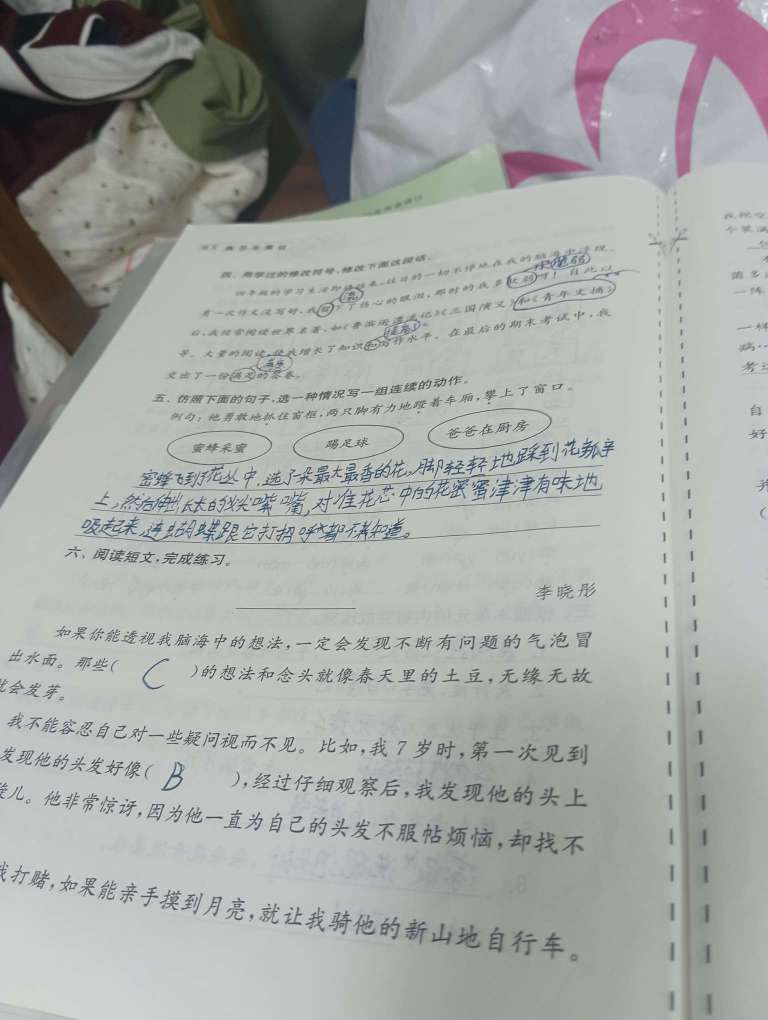 四、用学过的修改符号,修改下面这段话。
四年级的学习生活即将结束,往日的一切不停地在我的脑海中浮现。
有一次作文没写好,我留下了伤心的眼泪,那时的我多
后,我经常阅读世界名著,如《鲁滨逊漂流记》《三国演义》和《青年文摘》
等。大量的阅读,使我增长了知识和写作水平。在最后的期末考试中,我
交出了一份满足的答卷。
五、仿照下面的句子,选一种情况写一组连续的动作。
例句:他勇敢地抓住窗框,两只脚有力地蹬着车厢,攀上了窗口。
蜜蜂采蜜 踢足球 爸爸在厨房
蜜蜂飞到花丛中,选了朵最大最香的花,脚轻轻地踩到花瓣
上,然后伸出长长的尖嘴,对准花芯中的花蜜津津有味地
吸起来,连蝴蝶跟它打招呼都不知道。
六、阅读短文,完成练习。
李晓彤
如果你能透视我脑海中的想法,一定会发现不断有问题的气泡冒
出水面。那些( C )的想法和念头就像春天里的土豆,无缘无故
就会发芽。
我不能容忍自己对一些疑问视而不见。比如,我7岁时,第一次见到
发现他的头发好像( B ),经过仔细观察后,我发现他的头上
旋儿。他非常惊讶,因为他一直为自己的头发不服帖烦恼,却找不
我打赌,如果能亲手摸到月亮,就让我骑他的新山地自行车。